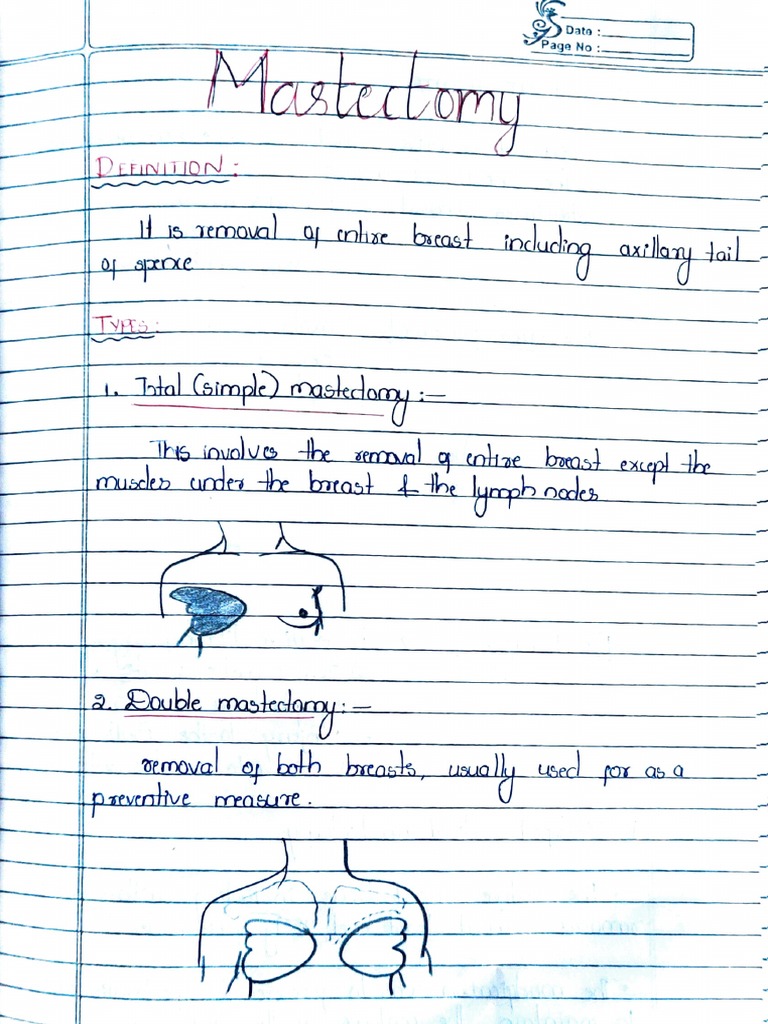 Date :
Page No :
Mastectomy
DEFINITION :
It is removal of entire breast including axillary tail
of spence
TYPES :
1. Total (simple) mastectomy :-
This involves the removal of entire breast except the
muscles under the breast & the lymph nodes
2. Double mastectomy :-
removal of both breasts, usually used for as a
preventive measure.